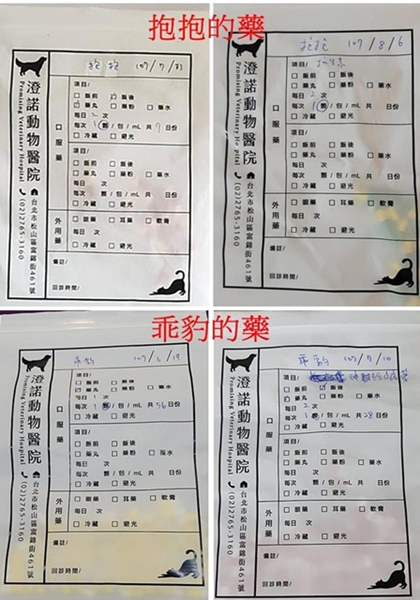 抱抱的藥
抱抱 107/7/31
澄諾動物醫院
Promising Veterinary Hospital
台北市松山區富錦街461號
(02)2765-3160
口服藥
項目/
□飯前 □飯後
□藥丸 □藥粉 □藥水
每日2次
每次1顆/包/mL 共7日份
□冷藏 □避光
項目/
□飯前 □飯後
□藥丸 □藥粉 □藥水
每日 次
每次 顆/包/mL 共 日份
□冷藏 □避光
外用藥
□眼藥 □耳藥 □軟膏
每日 次
□冷藏 □避光
備註/
回診時間/
107/8/6
澄諾動物醫院
Promising Veterinary Hospital
台北市松山區富錦街461號
(02)2765-3160
口服藥
項目/
□飯前 □飯後
□藥丸 □藥粉 □藥水
每日2次
每次1顆/包/mL 共 日份
□冷藏 □避光
項目/
□飯前 □飯後
□藥丸 □藥粉 □藥水
每日 次
每次 顆/包/mL 共 日份
□冷藏 □避光
外用藥
□眼藥 □耳藥 □軟膏
每日 次
□冷藏 □避光
備註/
回診時間/
乖豹的藥
乖豹
澄諾動物醫院
Promising Veterinary Hospital
台北市松山區富錦街461號
(02)2765-3160
口服藥
項目/
□飯前 □飯後
□藥丸 □藥粉 □藥水
每日1次
每次1顆/包/mL 共56日份
□冷藏 □避光
項目/
□飯前 □飯後
□藥丸 □藥粉 □藥水
每日 次
每次 顆/包/mL 共 日份
□冷藏 □避光
外用藥
□眼藥 □耳藥 □軟膏
每日 次
□冷藏 □避光
備註/
回診時間/
乖豹 107/7/10
澄諾動物醫院
Promising Veterinary Hospital
台北市松山區富錦街461號
(02)2765-3160
口服藥
項目/
□飯前 □飯後
□藥丸 □藥粉 □藥水
每日2次
每次1顆/包/mL 共28日份
□冷藏 □避光
項目/
□飯前 □飯後
□藥丸 □藥粉 □藥水
每日 次
每次 顆/包/mL 共 日份
□冷藏 □避光
外用藥
□眼藥 □耳藥 □軟膏
每日 次
□冷藏 □避光
備註/
回診時間/